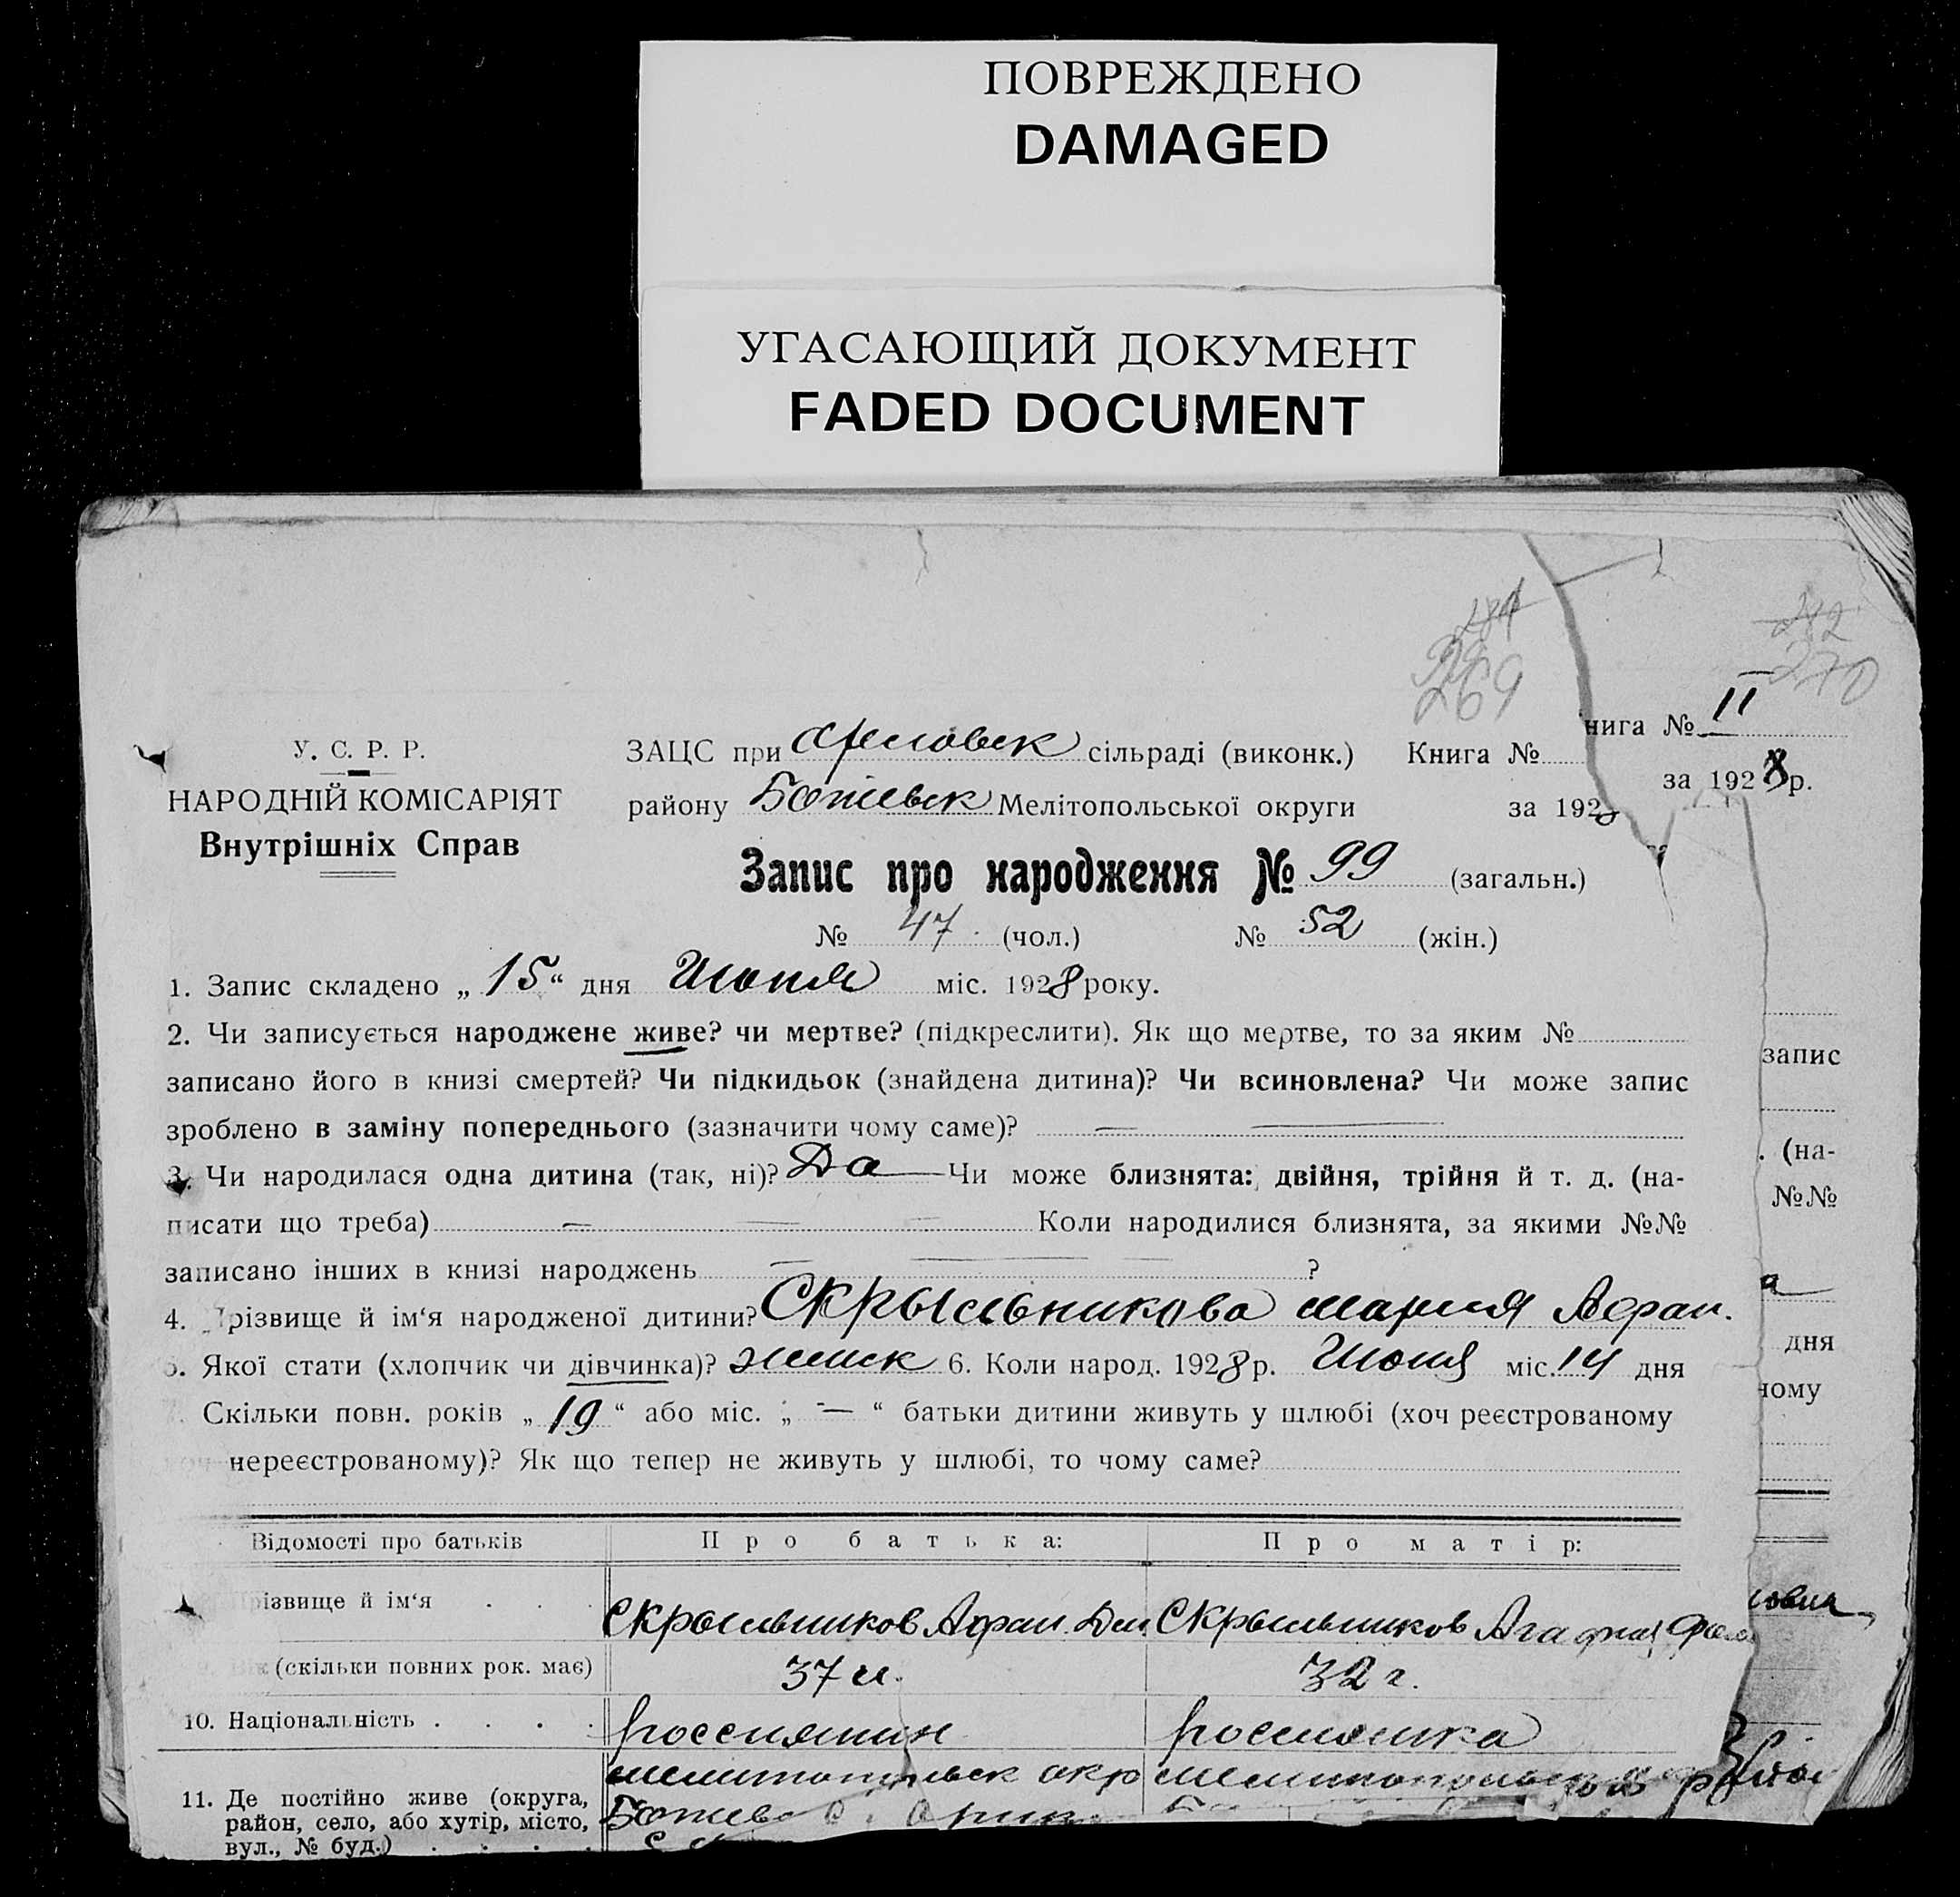 ПОВРЕЖДЕНО
DAMAGED
УГАСАЮЩИЙ ДОКУМЕНТ
FADED DOCUMENT
269
270
нига № II
за 1928р.
У. С. Р. Р.
НАРОДНІЙ КОМІСАРІЯТ
Внутрішніх Справ
ЗАЦС при сільраді (виконк.) Книга №
району Божевск Мелітопольської округи за 1928
Запис про народження № 99 (загальн.)
№ 47 (чол.) № 52 (жін.)
1. Запис складено „ 15 “ дня Июня міс. 1928 року.
2. Чи записується народжене живе? чи мертве? (підкреслити). Як що мертве, то за яким №
записано його в книзі смертей? Чи підкидьок (знайдена дитина)? Чи всиновлена? Чи може запис
зроблено в заміну попереднього (зазначити чому саме)? — —
3. Чи народилася одна дитина (так, ні)? Да Чи може близнята: двійня, трійня й т. д. (на-
писати що треба) — — — Коли народилися близнята, за якими №№
записано інших в книзі народжень — — — ?
4. різвище й ім‘я народженої дитини? Скрыльникова Мария Афан.
Якої стати (хлопчик чи дівчинка)? женск 6. Коли народ. 1928 р. Июня міс. 14 дня
Скільки повн. років „ 19 “ або міс. „ — “ батьки дитини живуть у шлюбі (хоч реєстрованому
нереєстрованому)? Як що тепер не живуть у шлюбі, то чому саме?
запис
. (на-
№№
а
дня
ному
Відомості про батьків Про батька: Про матір:
різвище й ім‘я . . . Скрыльников Афан. Дем Скрыльников Агафия
(скільки повних рок. має) 37 л. 32 г.
10. Національність . . . . россиянин россиянка
11. Де постійно живе (округа, Мелитопольск окр Мелитопольск
район, село, або хутір, місто, Божевс
вул., № буд.) . . . .